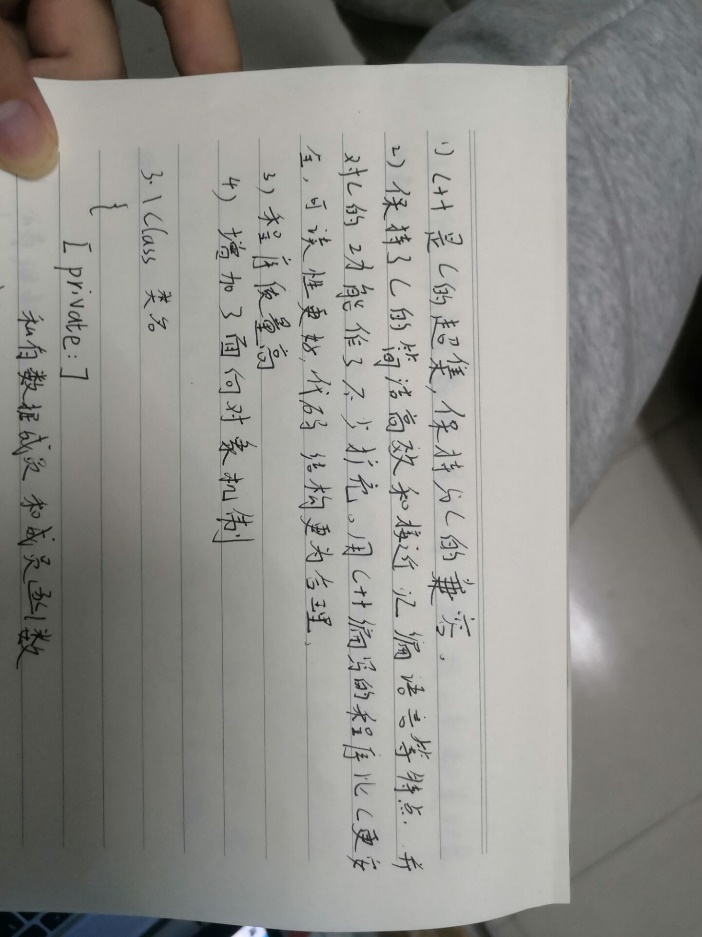 1) C++是C的超集,保持与C的兼容。
2) 保持了C的简洁高效和接近汇编语言等特点.并
对C的功能作了不少扩充。用C++编写的程序比C更安
全,可读性更好,代码结构更为合理、
3) 程序质量高
4) 增加了面向对象机制
3.1 Class 类名
{
[private:]
私有数据成员和成员函数